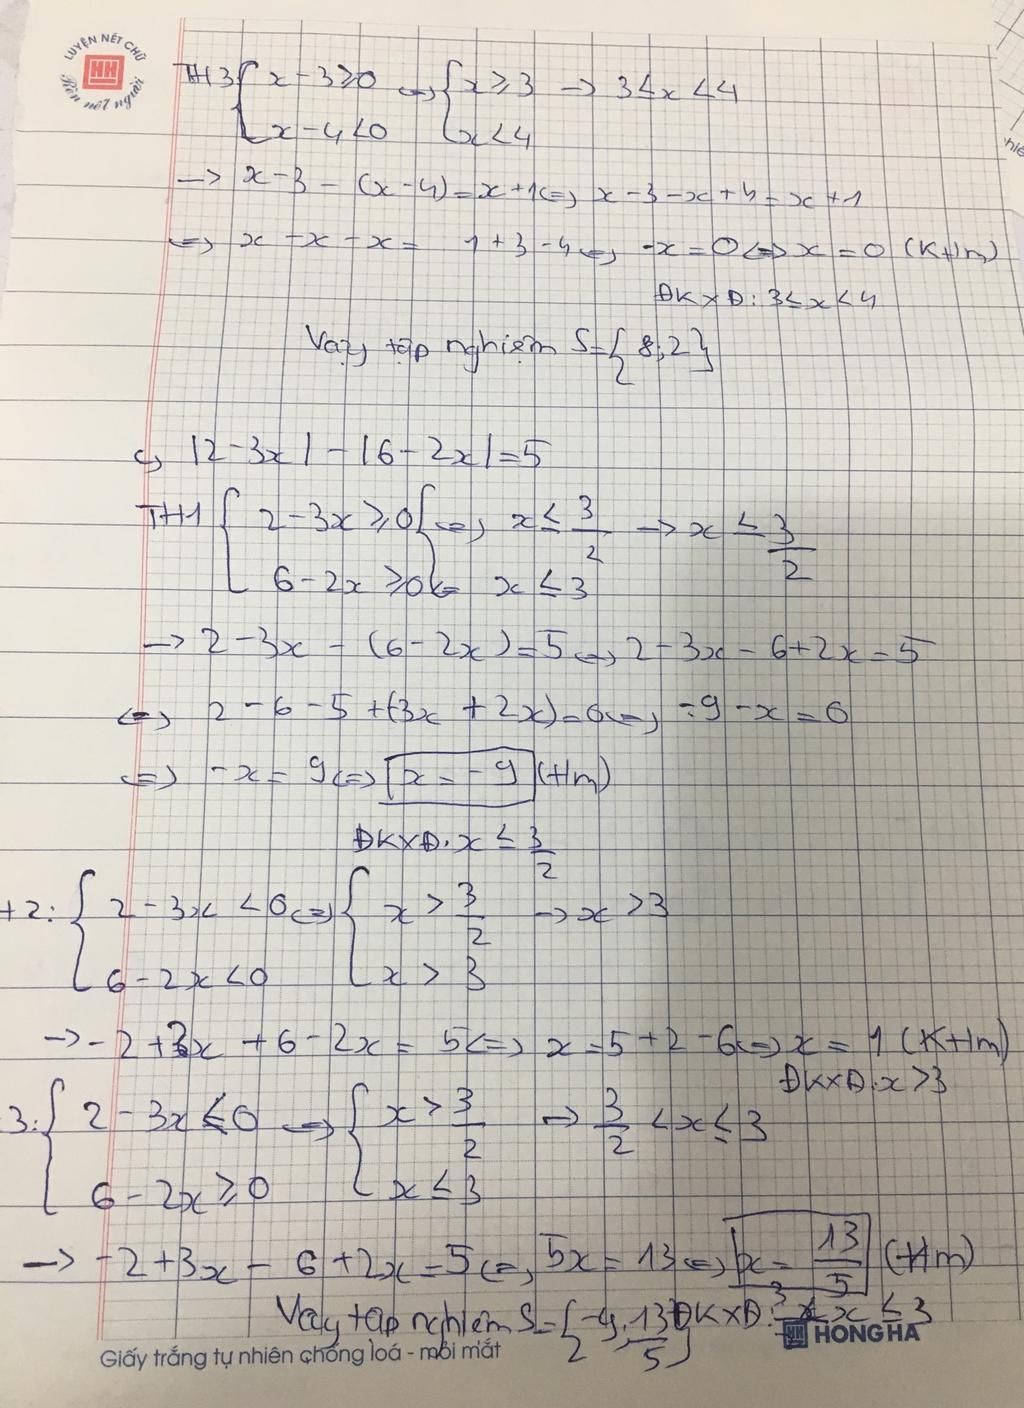 LUYỆN NẾT CHỮ
HH
Rèn nết người
TH3 { x - 3 ≥ 0 <=> { x ≥ 3 -> 3 ≤ x < 4
x - 4 < 0 x < 4
-> x - 3 - (x - 4) = x + 1 <=> x - 3 - x + 4 = x + 1
<=> x - x - x = 1 + 3 - 4 <=> -x = 0 <=> x = 0 (K+/m)
ĐKXĐ: 3 ≤ x < 4
Vậy tập nghiệm S = { 8; 2 }
c, |2 - 3x| - |6 - 2x| = 5
TH1 { 2 - 3x ≥ 0 { <=> x ≤ 3/2 -> x ≤ 3/2
6 - 2x ≥ 0 <= x ≤ 3
-> 2 - 3x - (6 - 2x) = 5 <=> 2 - 3x - 6 + 2x = 5
<=> 2 - 6 - 5 + (3x + 2x) = 0 <=> -9 - x = 0
<=> -x = 9 <=> x = -9 (t/m)
ĐKXĐ. x ≤ 3/2
+2: { 2 - 3x < 0 <=> { x > 3/2 -> x > 3
6 - 2x < 0 x > 3
-> -2 + 3x + 6 - 2x = 5 <=> x = 5 + 2 - 6 <=> x = 1 (K+/m)
ĐKXĐ. x > 3
3: { 2 - 3x ≤ 0 <=> { x > 3/2 -> 3/2 < x ≤ 3
6 - 2x ≥ 0 x ≤ 3
-> -2 + 3x - 6 + 2x = 5 <=> 5x = 13 <=> x = 13/5 (t/m)
Vậy tập nghiệm S = { -9, 13/5 } ĐKXĐ: 3/2 < x ≤ 3
HH HONG HA
Giấy trắng tự nhiên chống loá - mỏi mắt